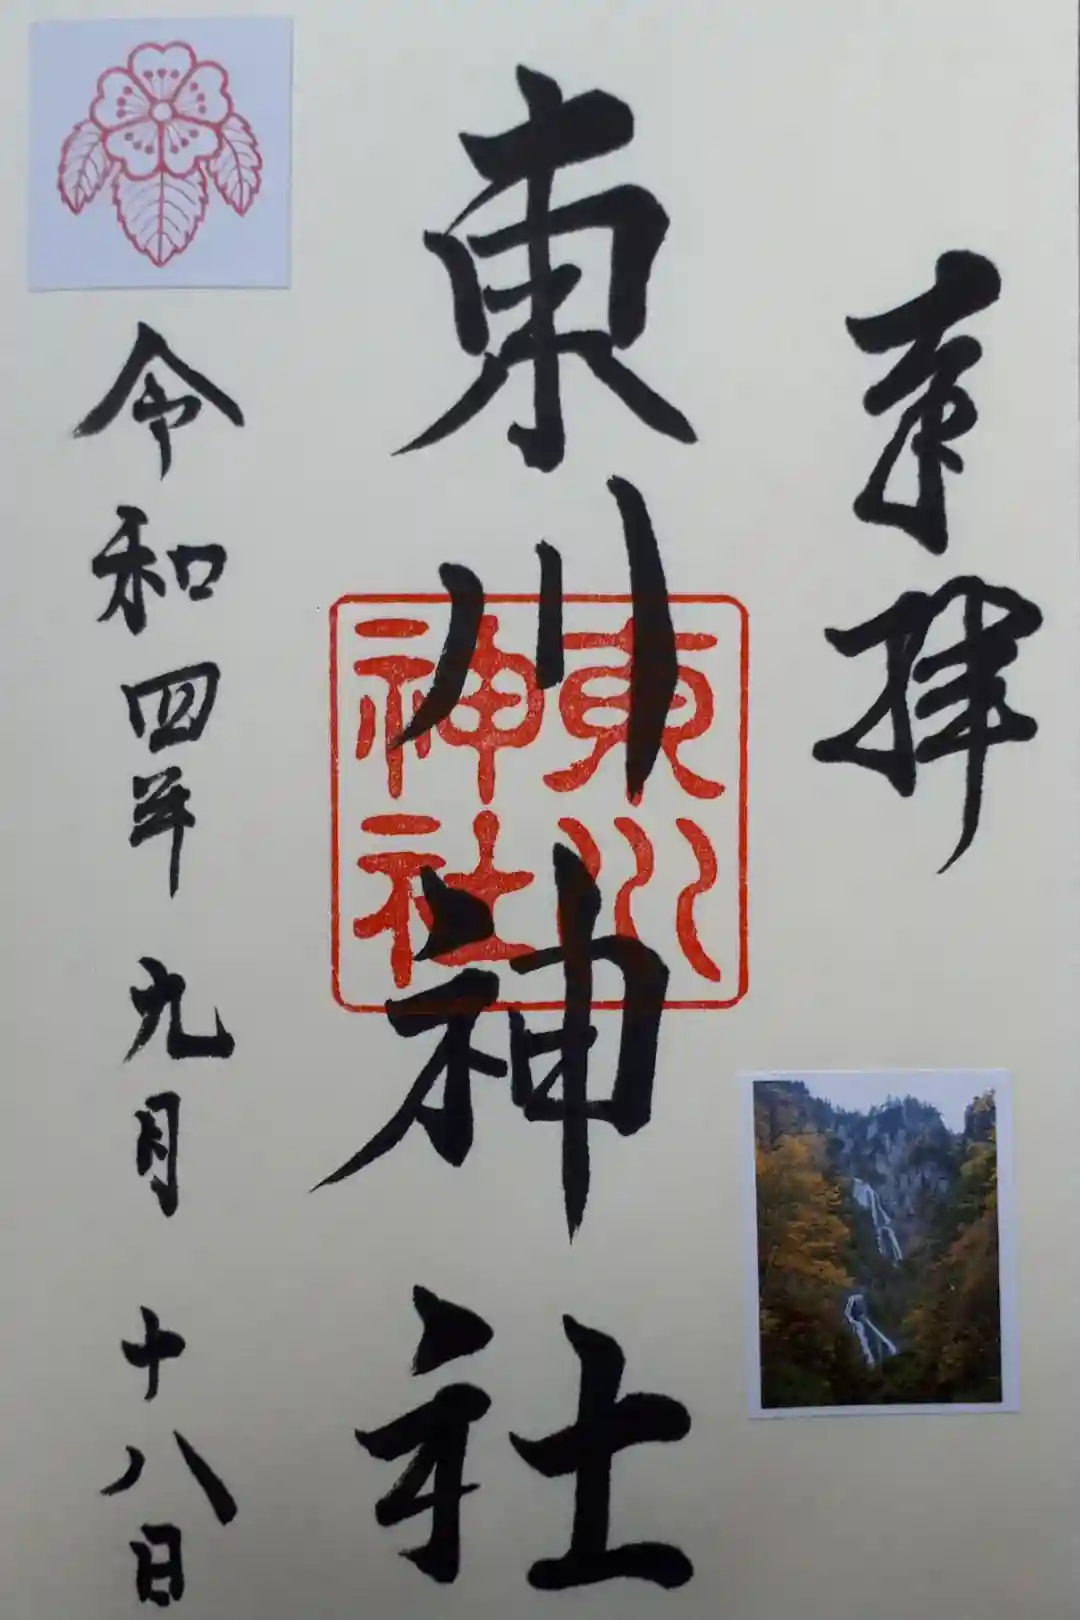 奉拝
東川神社
東川
神社
令和四年九月十八日